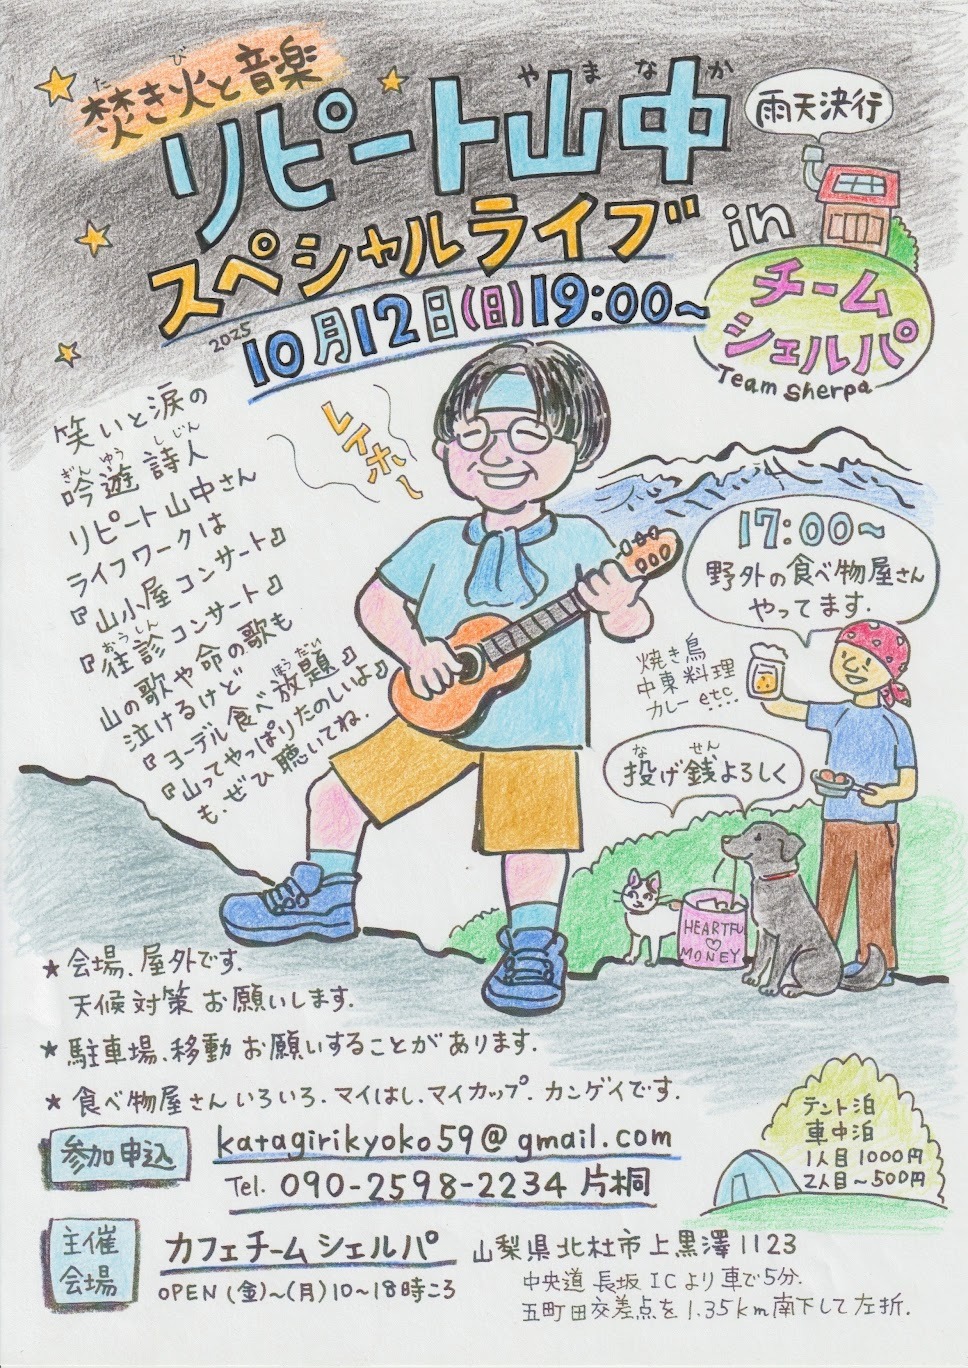 焚き火と音楽
たび
リピート山中
やまなか
スペシャルライブ in
雨天決行
チーム
シェルパ
Team Sherpa
2025
10月12日(日)19:00~
笑いと涙の
吟遊詩人
ぎんゆうしじん
リピート山中さん
ライフワークは
『山小屋コンサート』
『往診コンサート』
おうしん
山の歌や命の歌も
泣けるけど
『ヨーデル食べ放題』
ほうだい
『山ってやっぱりたのしいよ』
も、ぜひ聴いてね.
レイホ~
17:00~
野外の食べ物屋さん
やってます.
焼き鳥
中東料理
カレー etc....
投げ銭よろしく
なせん
HEARTFU
MONEY
★ 会場、屋外です.
天候対策お願いします.
★ 駐車場、移動お願いすることがあります.
★ 食べ物屋さんいろいろ.マイはし.マイカップ.カンゲイです.
参加申込
katagirikyoko59@gmail.com
Tel. 090-2598-2234 片桐
テント泊
車中泊
1人目1000円
2人目~500円
主催
会場
カフェチームシェルパ 山梨県北杜市上黒澤1123
OPEN (金)~(月)10~18時ころ
中央道 長坂ICより車で5分.
五町田交差点を1.35km南下して左折.